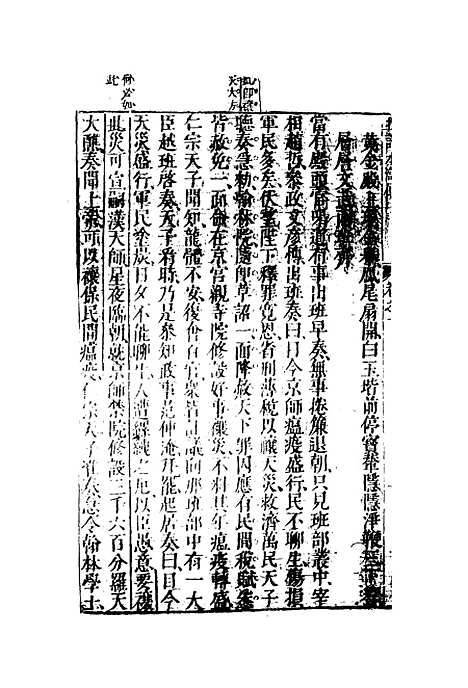 黃金殿上
鳳尾扇開白玉堦前停寶輦隱隱淨鞭三下響
層層文武兩班齊
當有殿頭官喝道有事出班早奏無事捲簾退朝只見班部叢中宰
相趙哲叅政文彥博出班奏曰目今京師瘟疫盛行民不聊生傷損
軍民多矣伏望陛下釋罪寬恩省刑薄稅以禳天災救濟萬民天子
聽奏急勅翰林院隨即草詔一面降赦天下罪囚應有民間稅賦悉
皆赦免一面命在京宮觀寺院修設好事禳災不料其年瘟疫轉盛
仁宗天子聞知龍體不安復會百官衆皆計議向那班部中有一大
臣越班啓奏天子看時乃是叅知政事范仲淹拜罷起居奏曰目今
天災盛行軍民塗炭日夕不能聊生人遭縲絏之厄以臣愚意要禳
此災可宣嗣漢天師星夜臨朝就京師禁院修設三千六百分羅天
大醮奏聞上帝可以禳保民間瘟疫仁宗天子准奏急令翰林學士
何必如
此